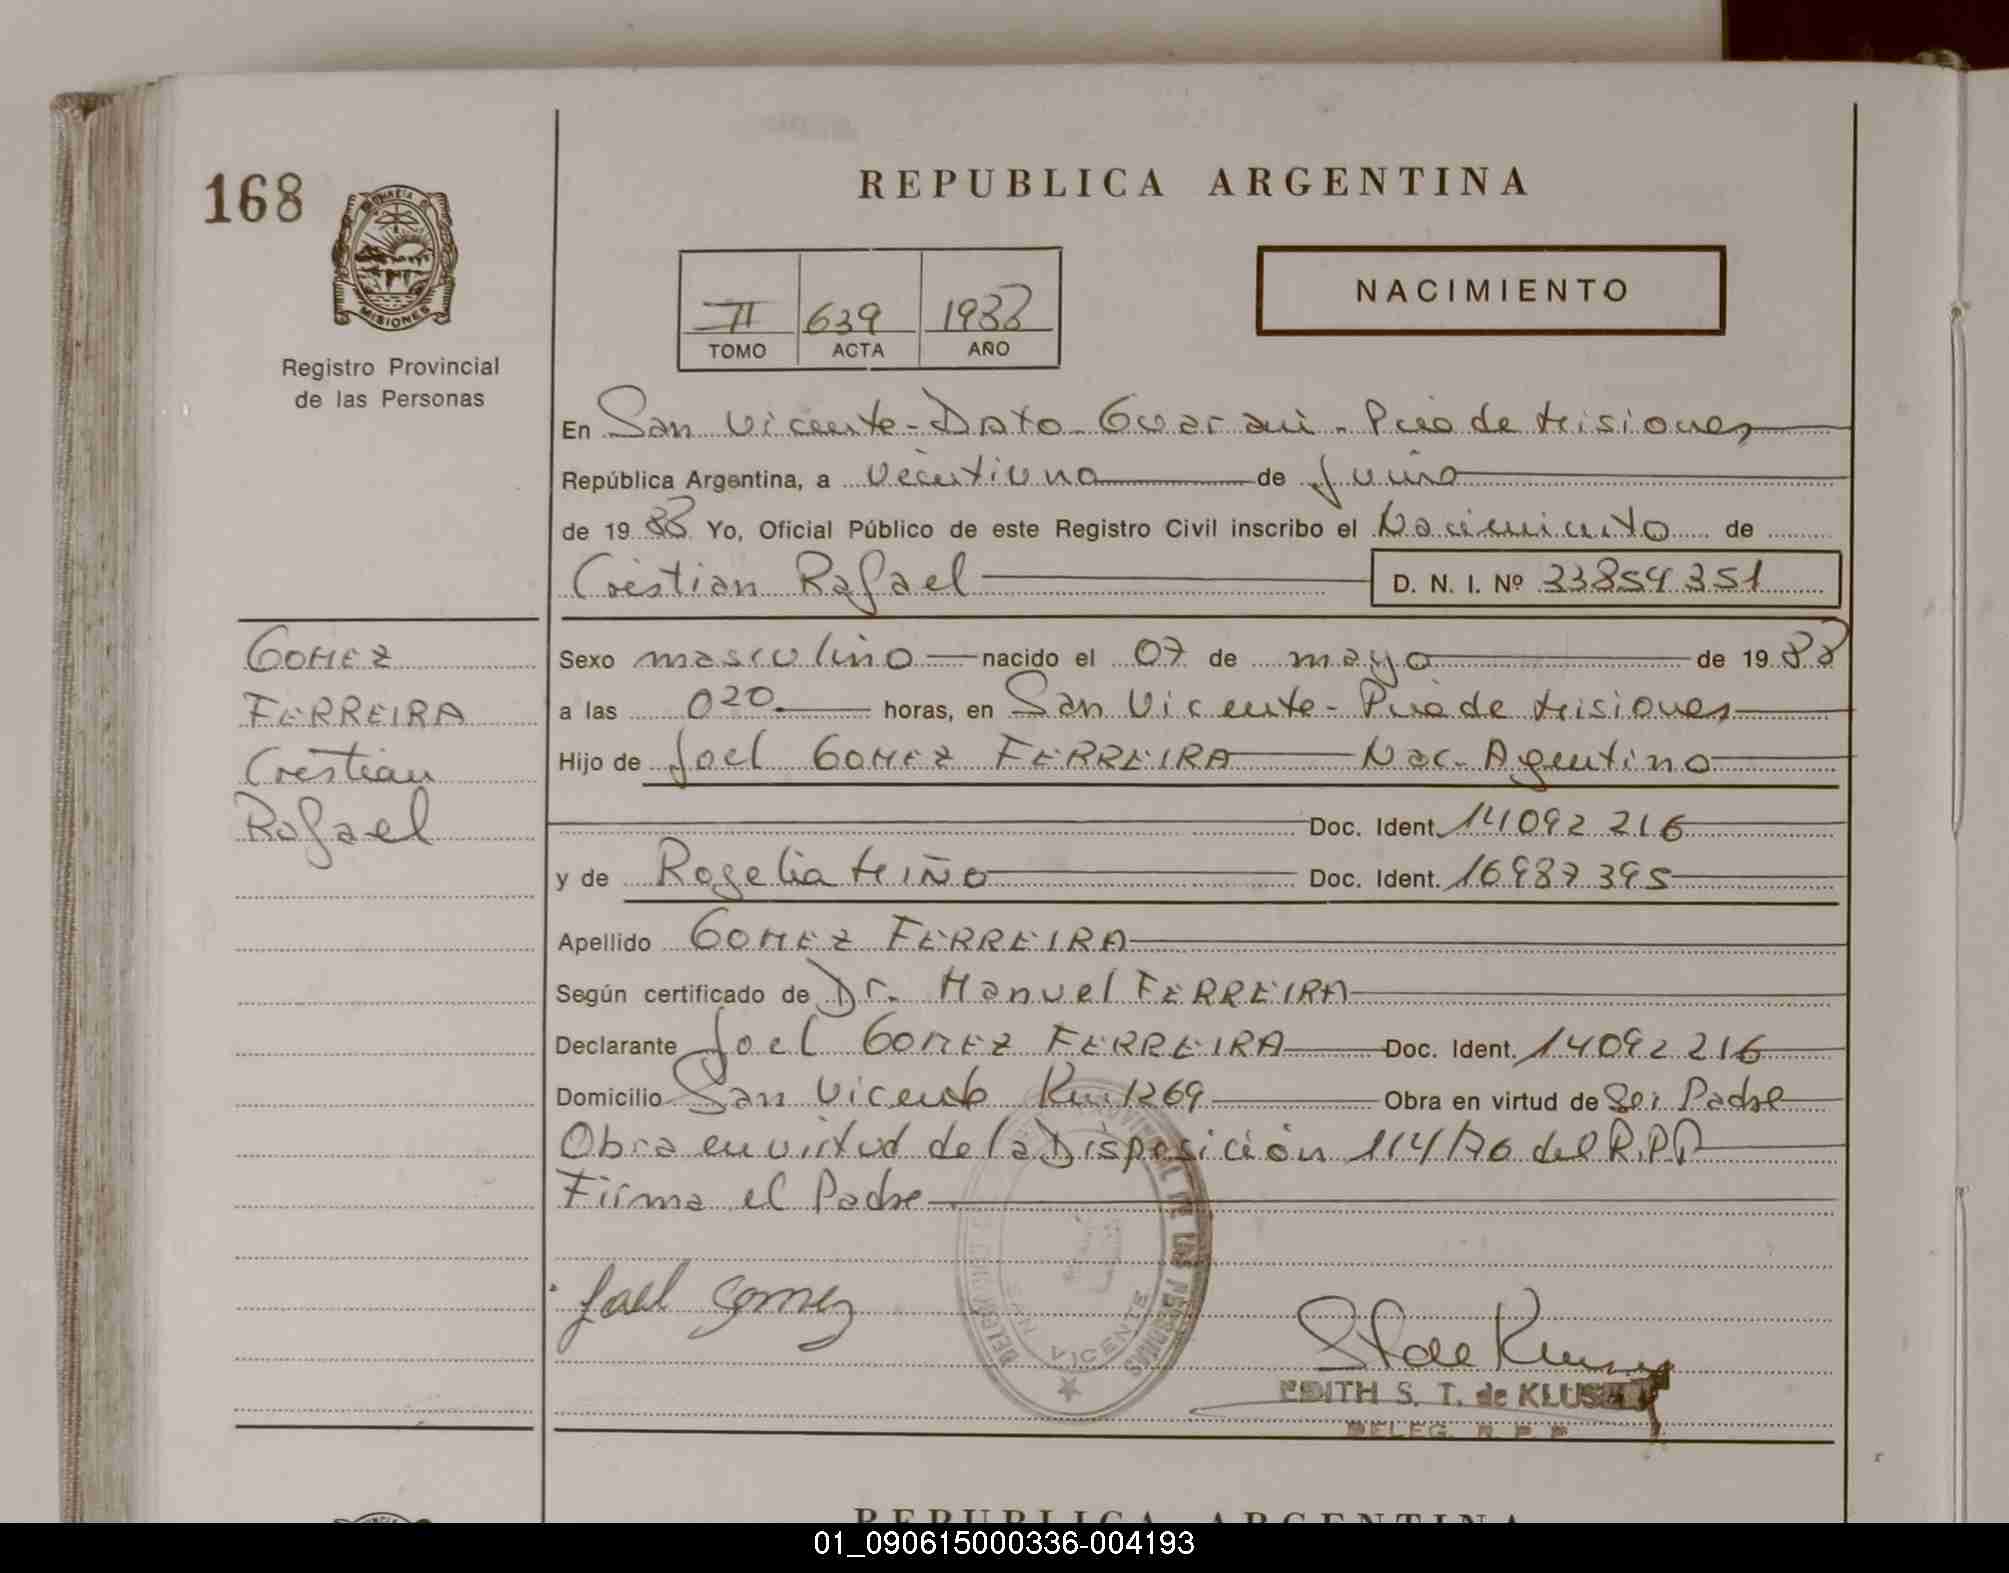 168
MISIONES
Registro Provincial
de las Personas
REPUBLICA ARGENTINA
II 639 1988
TOMO ACTA AÑO
NACIMIENTO
En San Vicente - Dpto Guarani - Pcia de Misiones
República Argentina, a veintiuno de Junio
de 1988 Yo, Oficial Público de este Registro Civil inscribo el Nacimiento de
Cristian Rafael D. N. I. Nº 33854351
GOMEZ
FERREIRA
Cristian
Rafael
Sexo masculino nacido el 07 de mayo de 1988
a las 020 horas, en San Vicente - Pcia de Misiones
Hijo de Joel GOMEZ FERREIRA Nac. Agentino
Doc. Ident. 14092216
y de Rogelia MIÑO Doc. Ident. 16987395
Apellido GOMEZ FERREIRA
Según certificado de Dr. Manuel FERREIRA
Declarante Joel GOMEZ FERREIRA Doc. Ident. 14092216
Domicilio San Vicente Km 1269 Obra en virtud de Ser Padre
Obra en virtud de la Disposición 114/76 del R.P.P
Firma el Padre
Joel Gomez
SAN VICENTE
EDITH S. T. de
DELEG. R. P. P.
REPUBLICA ARGENTINA
01_090615000336-004193